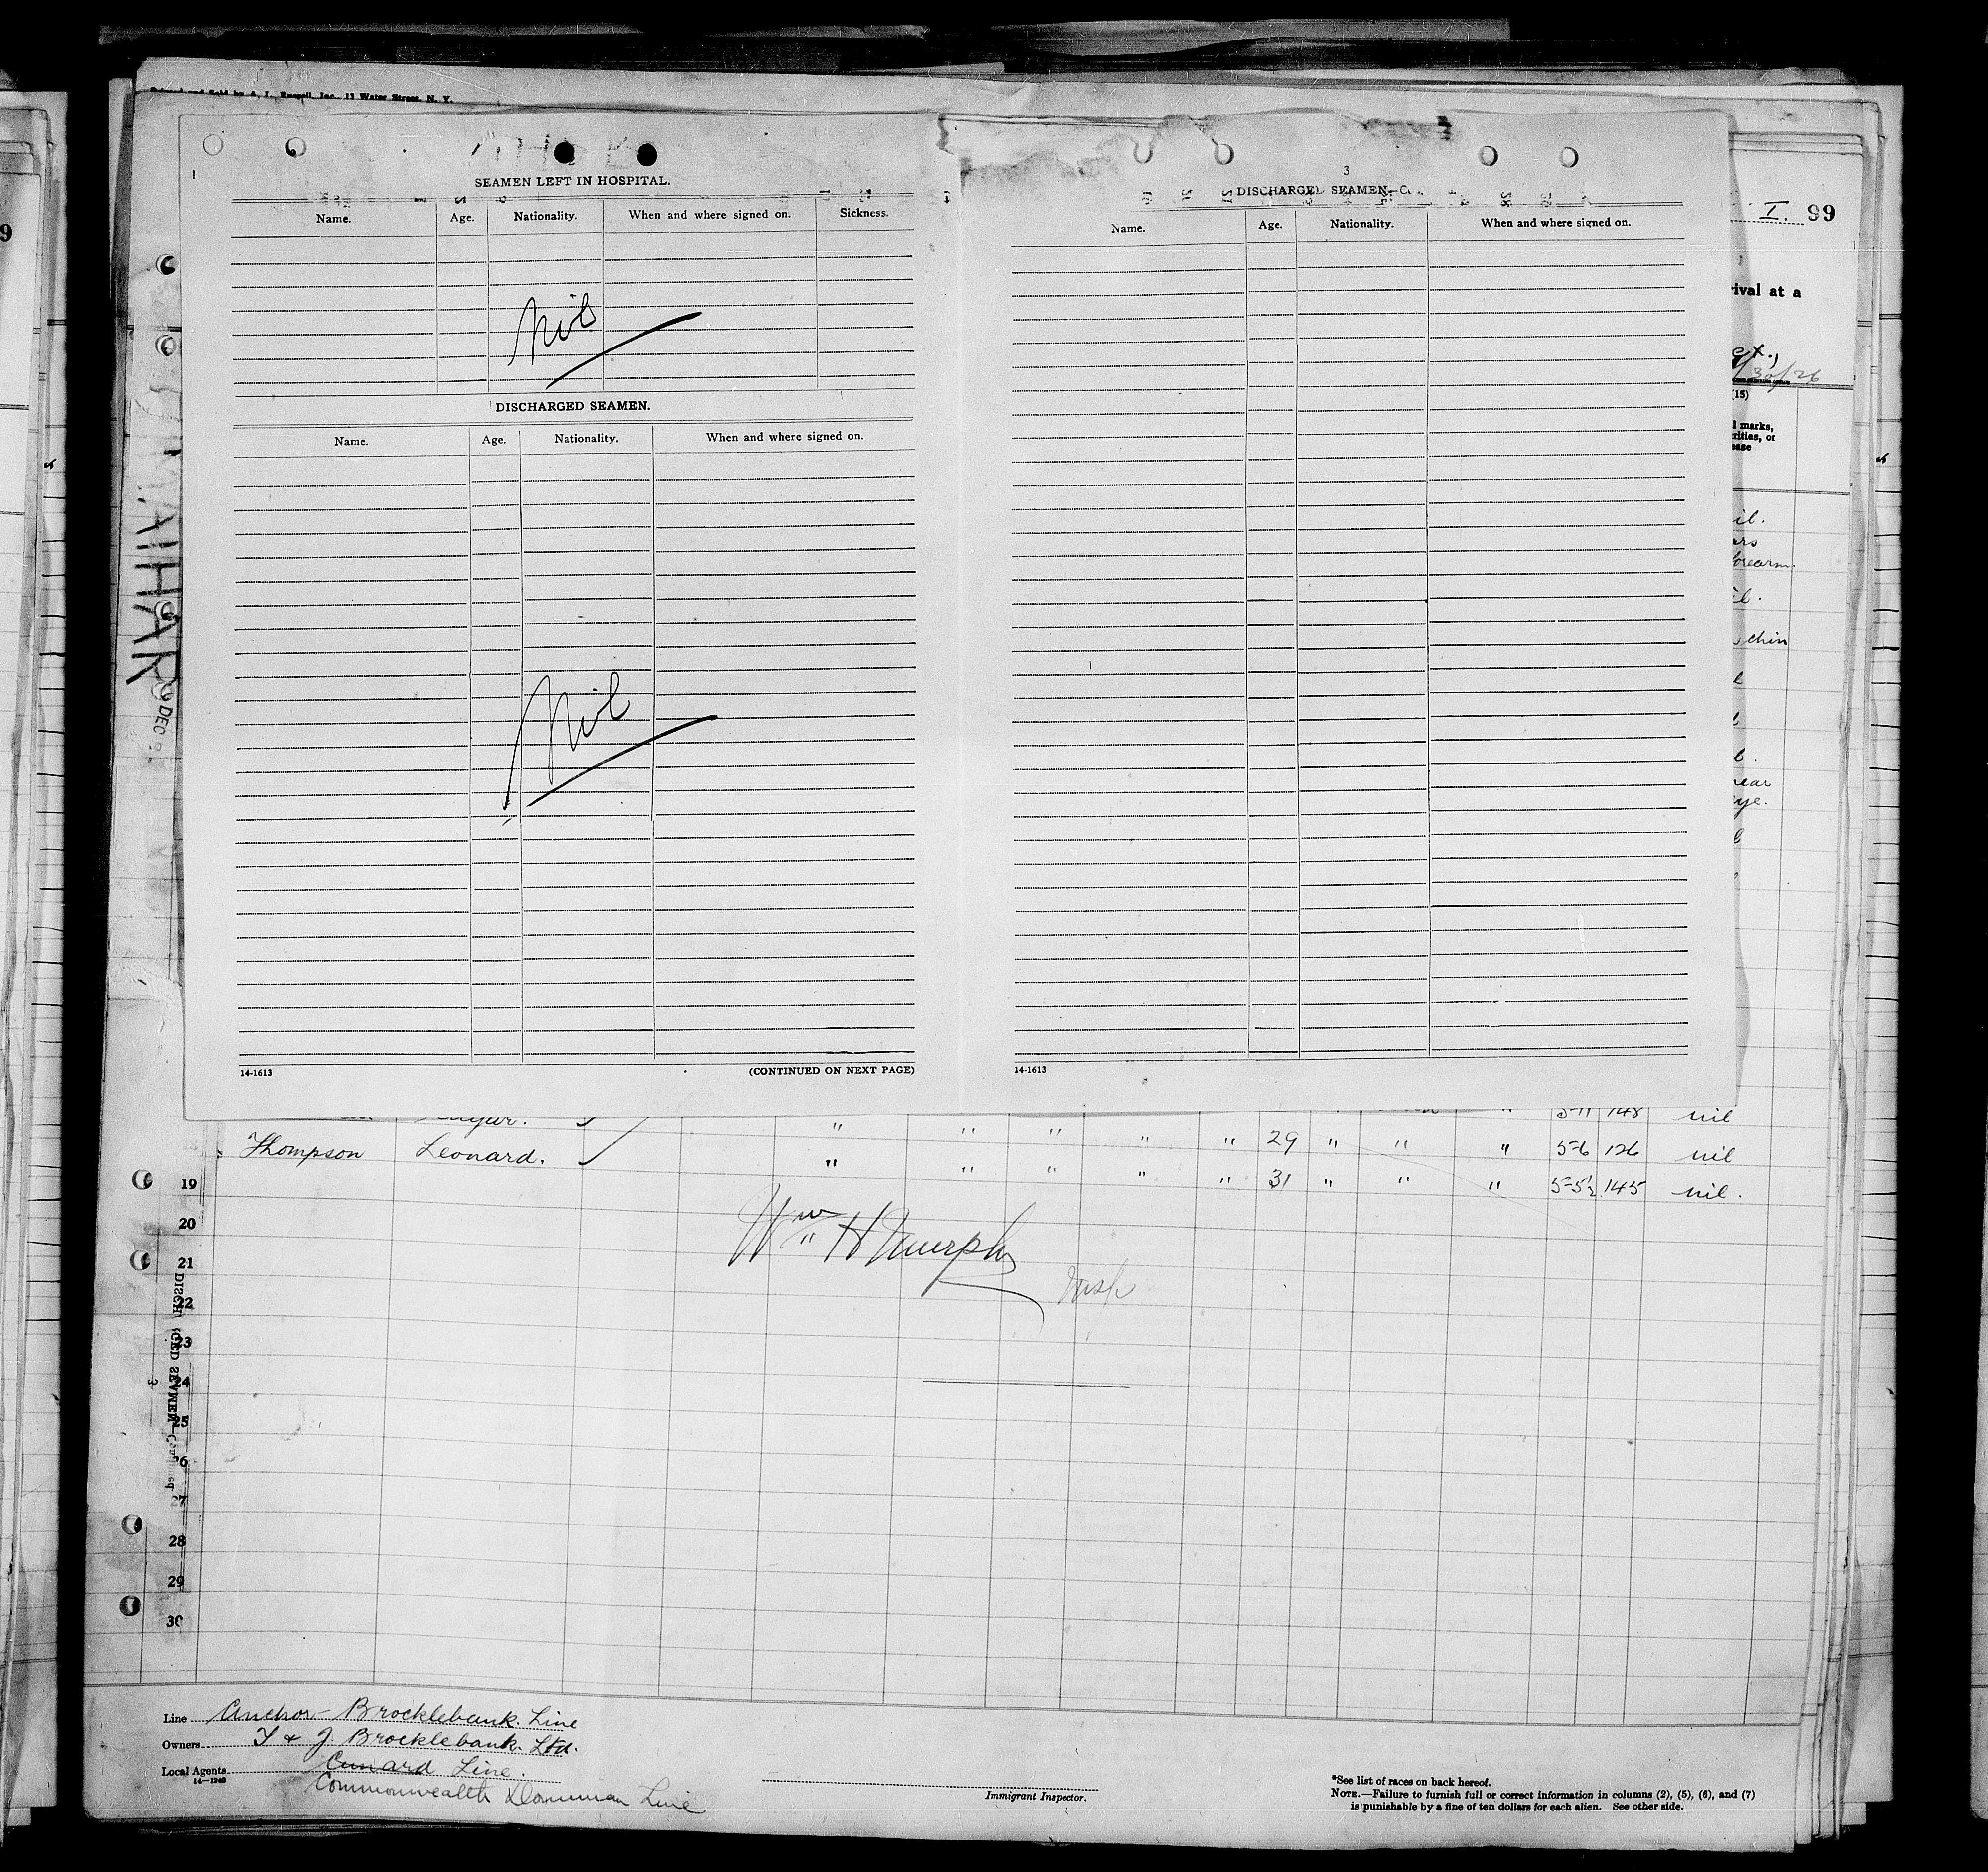 Printed and Sold by A. L. Russell, Inc., 13 Water Street, N. Y.
1
SEAMEN LEFT IN HOSPITAL.
Name. Age. Nationality. When and where signed on. Sickness.
Nil
DISCHARGED SEAMEN.
Name. Age. Nationality. When and where signed on.
Nil
14-1613 (CONTINUED ON NEXT PAGE)
3
DISCHARGED SEAMEN—C
Name. Age. Nationality. When and where signed on.
14-1613
I. 99
9
rival at a
ex.,
30/26
(15)
l marks,
rities, or
ease
il.
ars
forearm.
il.
chin
l
b.
near
eye.
MAIHAR
DEC
5-11 148 nil
Thompson Leonard. " " " " " 29 " " " 5-6 126 nil
" " " " " 31 " " " 5-5½ 145 nil.
19
20
Wm H Murphy
21
Insp
22
23
24
25
26
27
28
29
30
DISCHARGED SEAMEN—Con
3
Line Anchor-Brocklebank. Line
Owners T & J Brocklebank. Ltd.
Local Agents Cunard Line.
14—1240
Commonwealth & Dominion Line
Immigrant Inspector.
*See list of races on back hereof.
NOTE.—Failure to furnish full or correct information in columns (2), (5), (6), and (7)
is punishable by a fine of ten dollars for each alien. See other side.